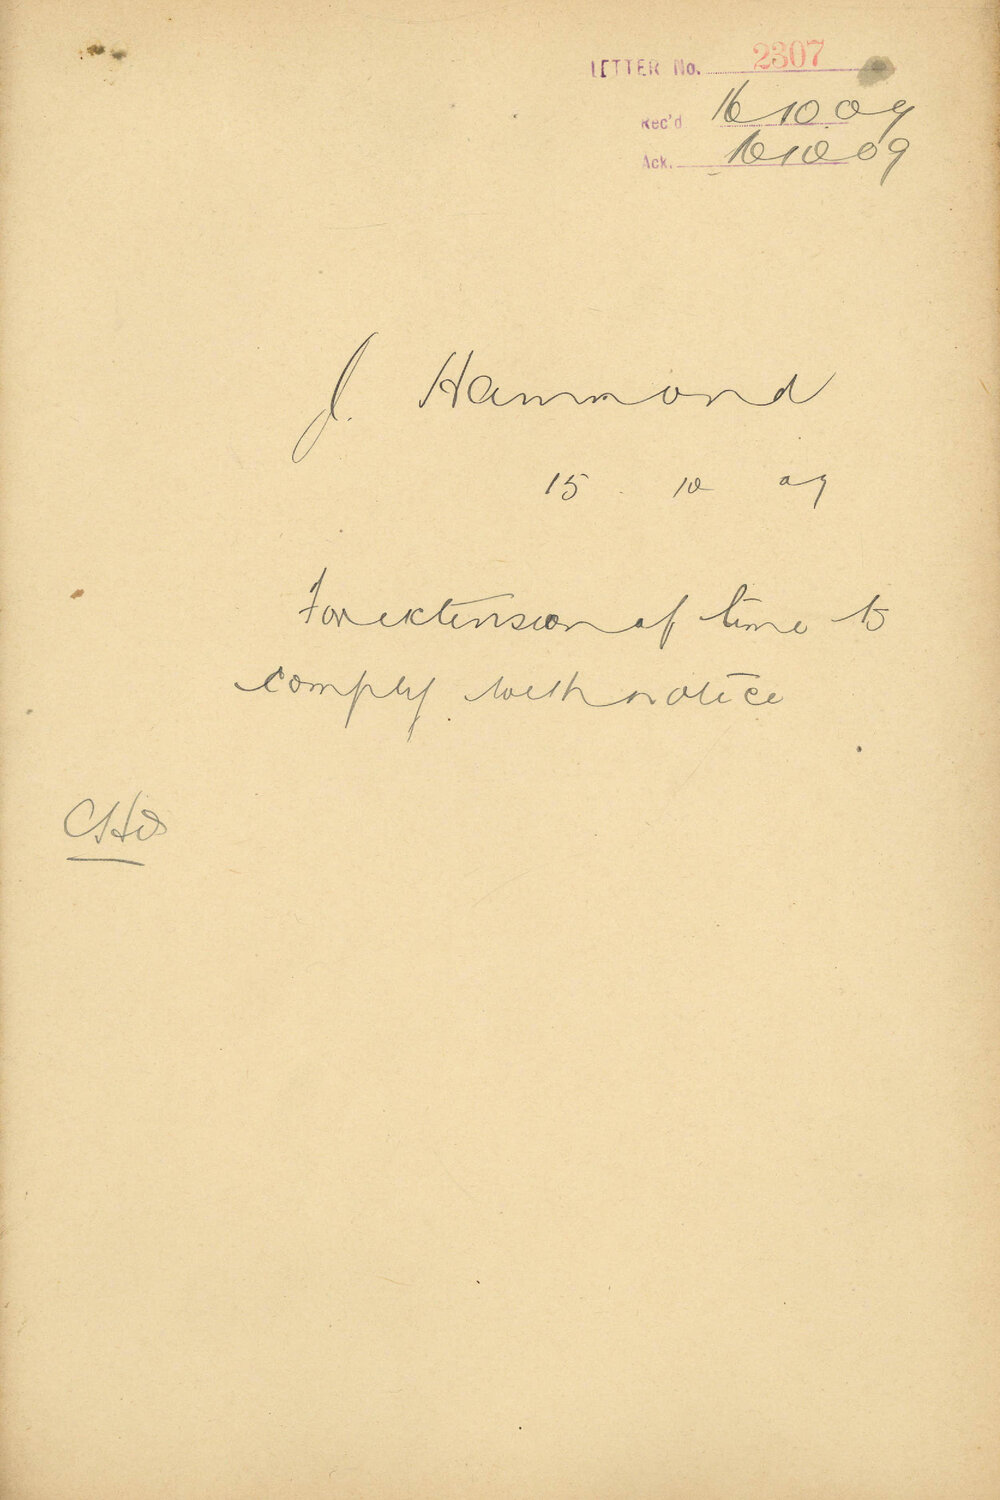 LETTER No. 2307
Rec'd 16 10 09
Ack. 16 10 09
J. Hammond
15 . 10 09
For extension of time to
comply with notice